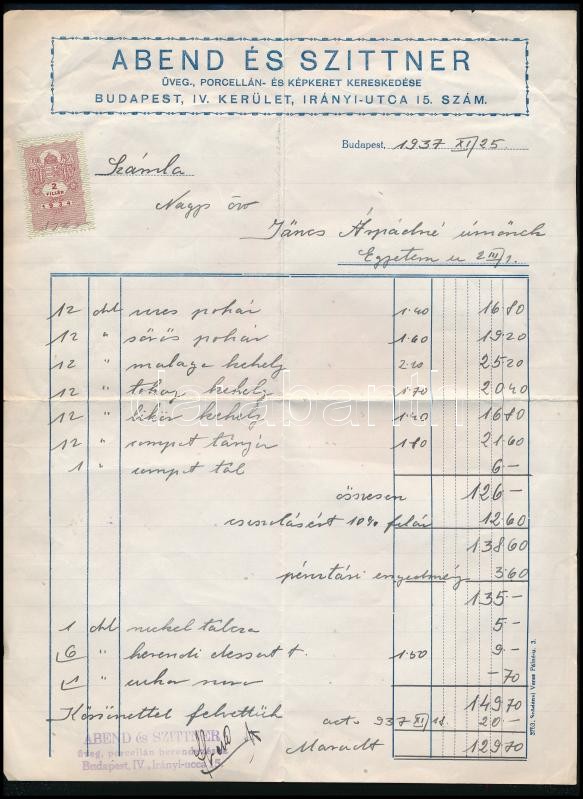 ABEND ÉS SZITTNER
ÜVEG-, PORCELLÁN- ÉS KÉPKERET KERESKEDÉSE
BUDAPEST, IV. KERÜLET, IRÁNYI-UTCA 15. SZÁM.
Budapest, 1937 XI/25
Számla
2
FILLÉR
1934
Nagys
Jáncs Árpádné úrnőnek
Egyetem u 2 III/1.
12 dbl pohár 1.40 16 80
12 " sörös pohár 1.60 19 20
12 " malaga kehely 2.10 25 20
12 " tokay kehely 1.70 20 40
12 " likör kehely 1.40 16 80
12 " compot tányér 1.80 21 60
1 " compot tál 6 –
összesen 126 –
csiszolásért 10% felár 12 60
138 60
pénztári engedmény 3 60
135 –
1 dbl nickel tálcza 5 –
6 " herendi dessert t. 1.50 9 –
1 " – 70
149 70
Köszönettel felvettük 937 XI 20 –
Maradt 129 70
ABEND és SZITTNER
üveg, porcellán
Budapest, IV., Irányi-ucca 15
darabanth